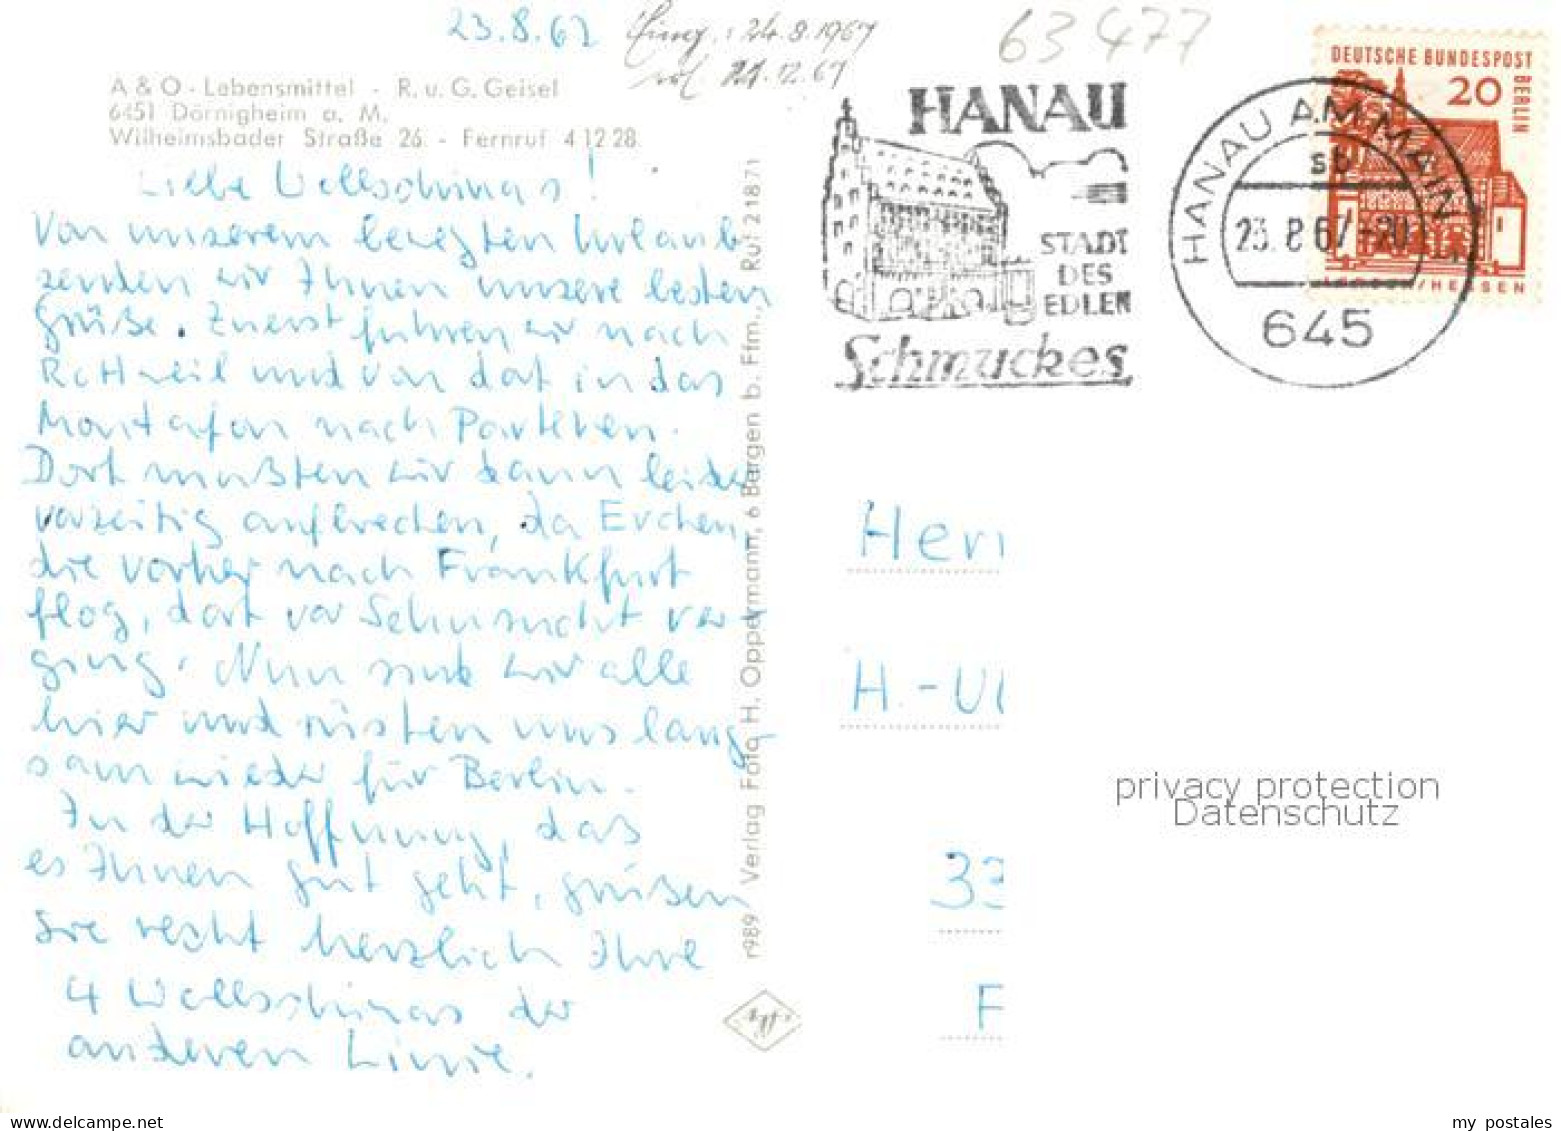 23.8.67
Eing.: 24.8.1967
21.12.67
63477
A & O - Lebensmittel - R. u. G. Geisel
6451 Dörnigheim a. M.
Wilhelmsbader Straße 26 - Fernruf 4 12 28
Liebe Wollschinas!
Von unserem beregten Urlaub
senden wir Ihnen unsere besten
Grüße. Zuerst fuhren wir nach
Rottweil und von dort in das
Montafon nach Partenen.
Dort mußten wir dann leider
vorzeitig aufbrechen, da Evchen,
die vorher nach Frankfurt
flog, dort vor Sehnsucht ver-
ging. Nun sind wir alle
hier und rüsten uns lang-
sam wieder für Berlin.
In der Hoffnung, daß
es Ihnen gut geht, grüßen
Sie recht herzlich Ihre
4 Wollschinas der
anderen Linie.
r989 Verlag Foto H. Oppermann, 6 Bergen b. Ffm., Ruf 21871
Agfa
HANAU
STADT
DES
EDLEN
Schmuckes
HANAU AM MAIN 1
sb
23.8.67-20
645
DEUTSCHE BUNDESPOST
BERLIN
20
LORSCH/HESSEN
Herr
H.-Ul
33
F
privacy protection
Datenschutz
my postales